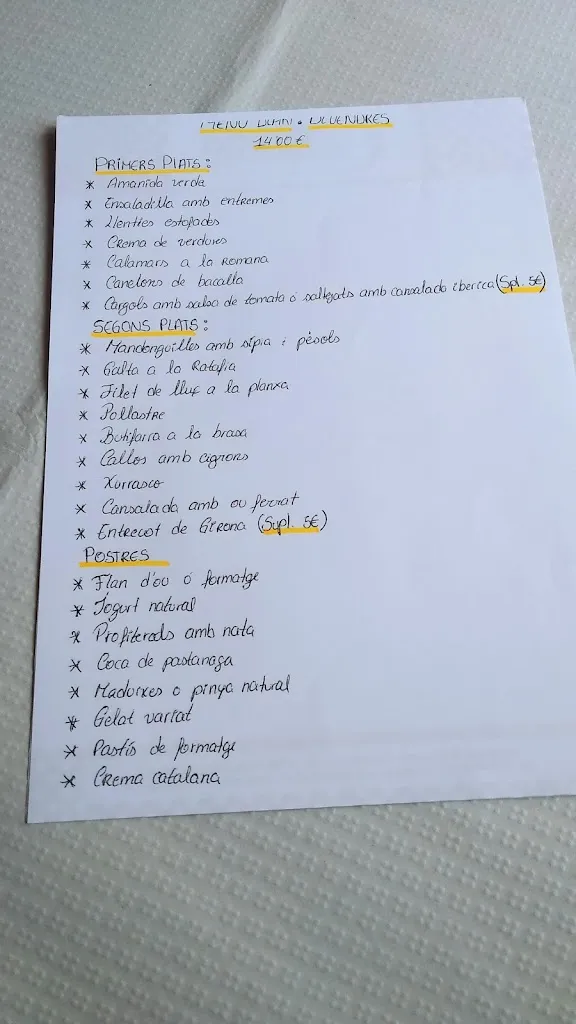 MENU DIARI • DIVENDRES
14'00 €
PRIMERS PLATS:
* Amanida verda
* Ensaladilla amb entremes
* Llenties estofades
* Crema de verdures
* Calamars a la Romana
* Canelons de bacallà
* Cargols amb salsa de tomata o saltejats amb cansalada iberica (Spl. 5€)
SEGONS PLATS:
* Mandonguilles amb sípia i pèsols
* Galta a la Ratafia
* Filet de lluç a la planxa
* Pollastre
* Butifarra a la brasa
* Callos amb cigrons
* Xurrasco
* Cansalada amb ou ferrat
* Entrecot de Girona (Supl. 5€)
POSTRES
* Flan d'ou o formatge
* Iogurt natural
* Profiterols amb nata
* Coca de pastanaga
* Maduixes o pinya natural
* Gelat variat
* Pastís de formatge
* Crema catalana